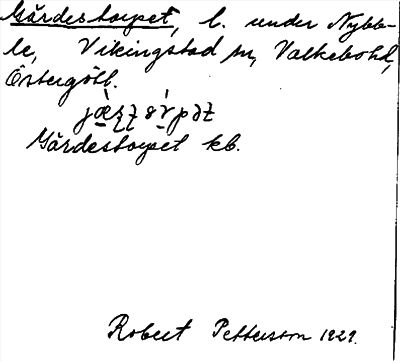 Gärdestorpet, l. under Nybb-
le, Vikingstad sn, Valkebo hd,
Östergötl.
Gärdestorpet kb.
Robert Pettersson 1929.